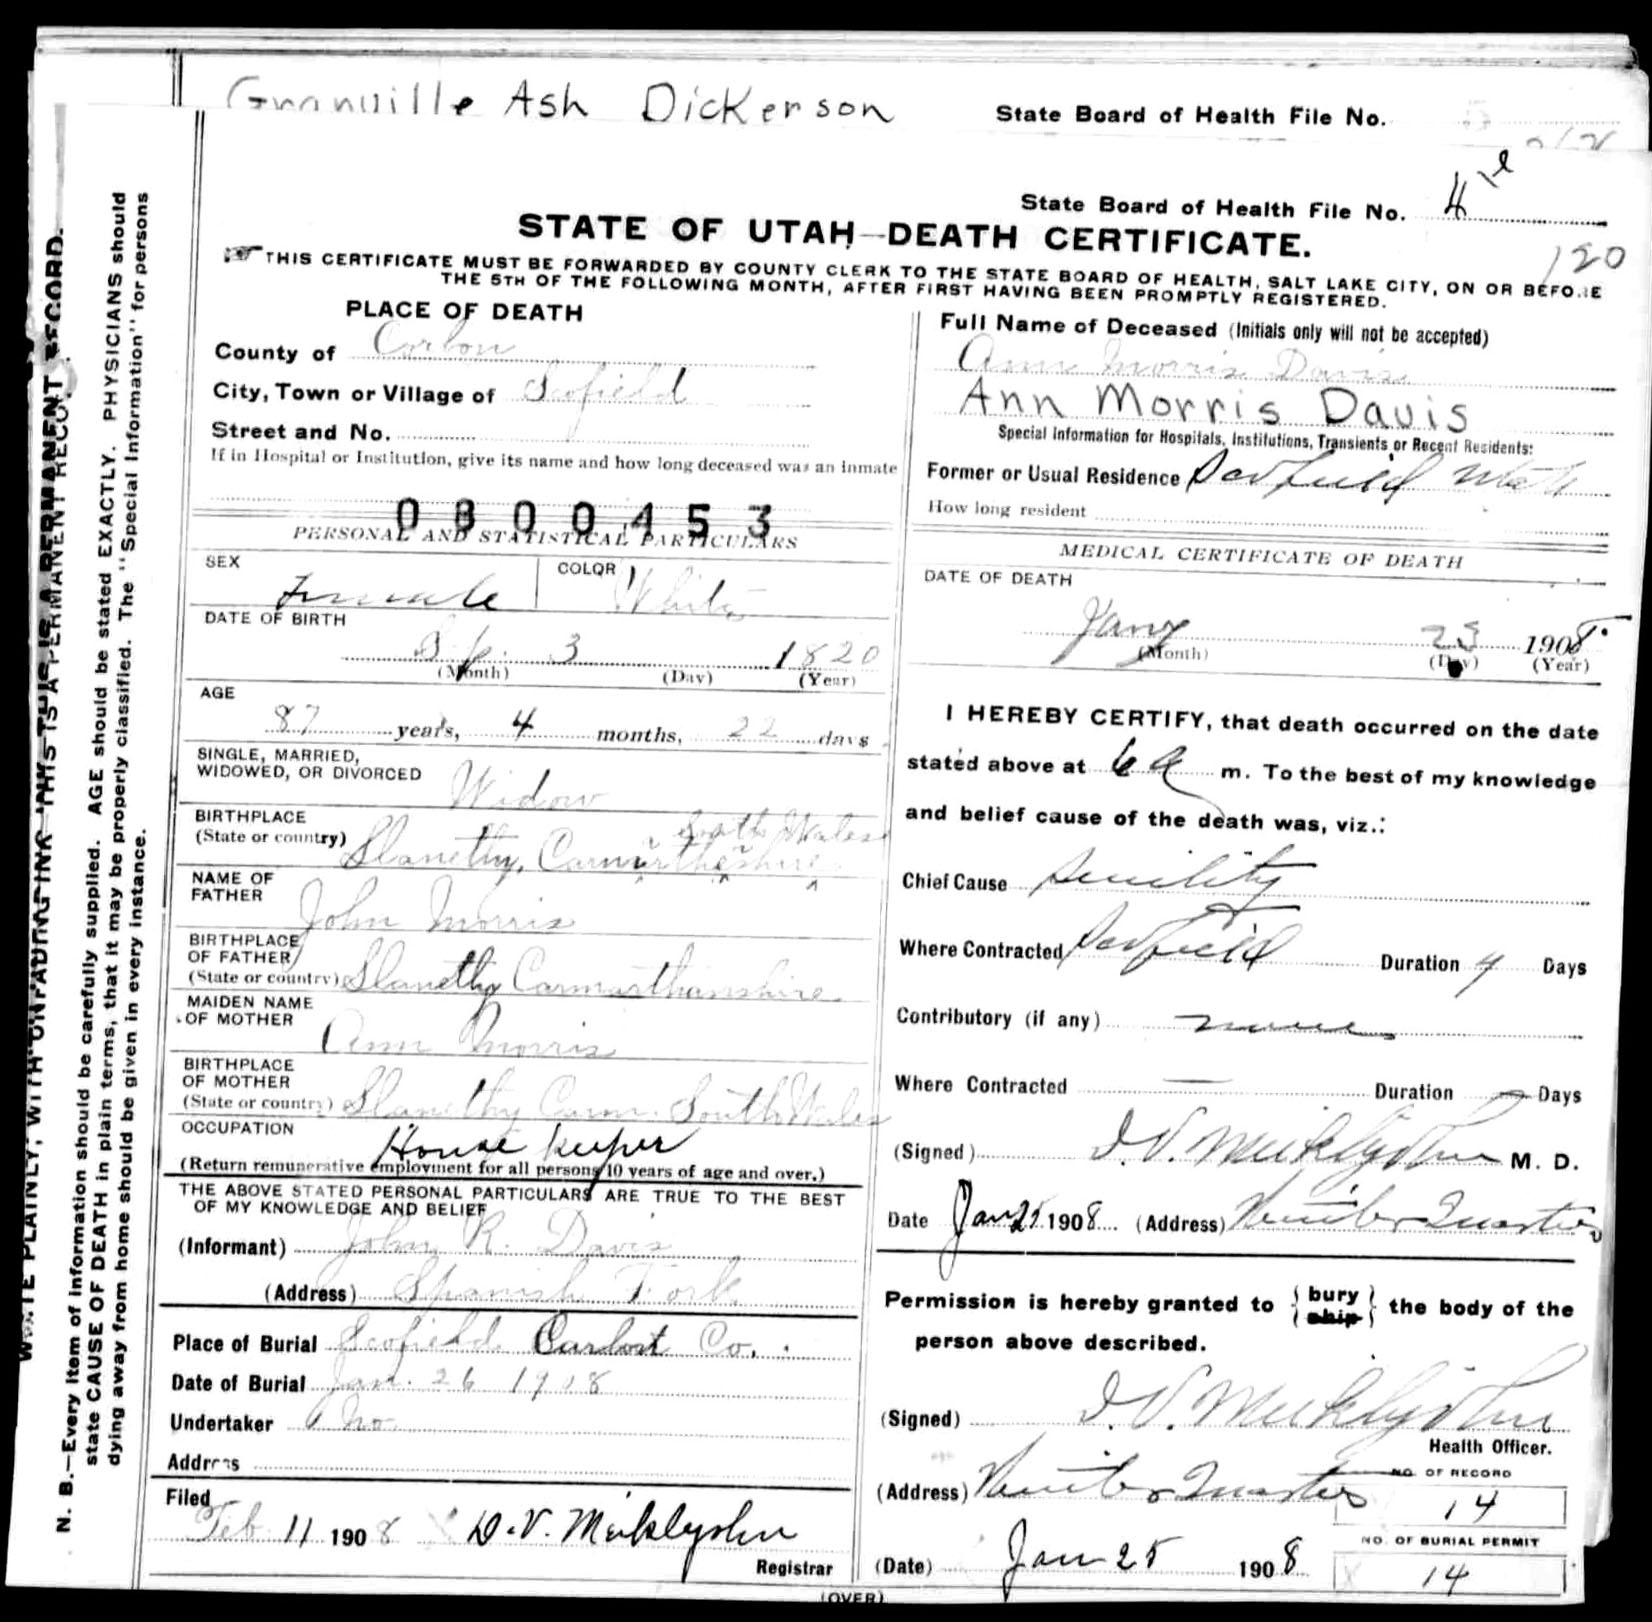 Granville Ash Dickerson
State Board of Health File No.
State Board of Health File No. 4
120
STATE OF UTAH—DEATH CERTIFICATE.
☞THIS CERTIFICATE MUST BE FORWARDED BY COUNTY CLERK TO THE STATE BOARD OF HEALTH, SALT LAKE CITY, ON OR BEFORE
THE 5TH OF THE FOLLOWING MONTH, AFTER FIRST HAVING BEEN PROMPTLY REGISTERED.
PLACE OF DEATH
County of Carbon
City, Town or Village of Scofield
Street and No.
If in Hospital or Institution, give its name and how long deceased was an inmate
0800453
PERSONAL AND STATISTICAL PARTICULARS
SEX
Female
COLOR
White
DATE OF BIRTH
Sep. 3 1820
(Month) (Day) (Year)
AGE
87 years, 4 months, 22 days
SINGLE, MARRIED,
WIDOWED, OR DIVORCED
Widow
BIRTHPLACE
(State or country)
South Wales
Llanethy, Carmartheshire
NAME OF
FATHER
John Morris
BIRTHPLACE
OF FATHER
(State or country) Llanethy Carmarthanshire
MAIDEN NAME
OF MOTHER
Ann Morris
BIRTHPLACE
OF MOTHER
(State or country) Llanethy Carm. South Wales
OCCUPATION
House keeper
(Return remunerative employment for all persons 10 years of age and over.)
THE ABOVE STATED PERSONAL PARTICULARS ARE TRUE TO THE BEST
OF MY KNOWLEDGE AND BELIEF
(Informant) John R. Davis
(Address) Spanish Fork
Place of Burial Scofield Carbon Co.
Date of Burial Jan. 26 1908
Undertaker no
Address
Filed
Feb 11 1908 D. V. Meiklejohn
Registrar
Full Name of Deceased (Initials only will not be accepted)
Ann Morris Davis
Ann Morris Davis
Special Information for Hospitals, Institutions, Transients or Recent Residents:
Former or Usual Residence Scofield Utah
How long resident
MEDICAL CERTIFICATE OF DEATH
DATE OF DEATH
Jany 25 1908
(Month) (Day) (Year)
I HEREBY CERTIFY, that death occurred on the date
stated above at 6 a m. To the best of my knowledge
and belief cause of the death was, viz.:
Chief Cause Senility
Where Contracted Scofield Duration 4 Days
Contributory (if any) none
Where Contracted — Duration — Days
(Signed) D. V. Meiklejohn M. D.
Date Jan 25 1908 (Address) Winter Quarters
Permission is hereby granted to { bury ship } the body of the
person above described.
(Signed) D. V. Meiklejohn
Health Officer.
(Address) Winter Quarters
NO. OF RECORD
14
NO. OF BURIAL PERMIT
14
(Date) Jan 25 1908
(OVER)
WRITE PLAINLY, WITH UNFADING INK—THIS IS A PERMANENT RECORD.
N. B.—Every item of information should be carefully supplied. AGE should be stated EXACTLY. PHYSICIANS should
state CAUSE OF DEATH in plain terms, that it may be properly classified. The "Special Information" for persons
dying away from home should be given in every instance.